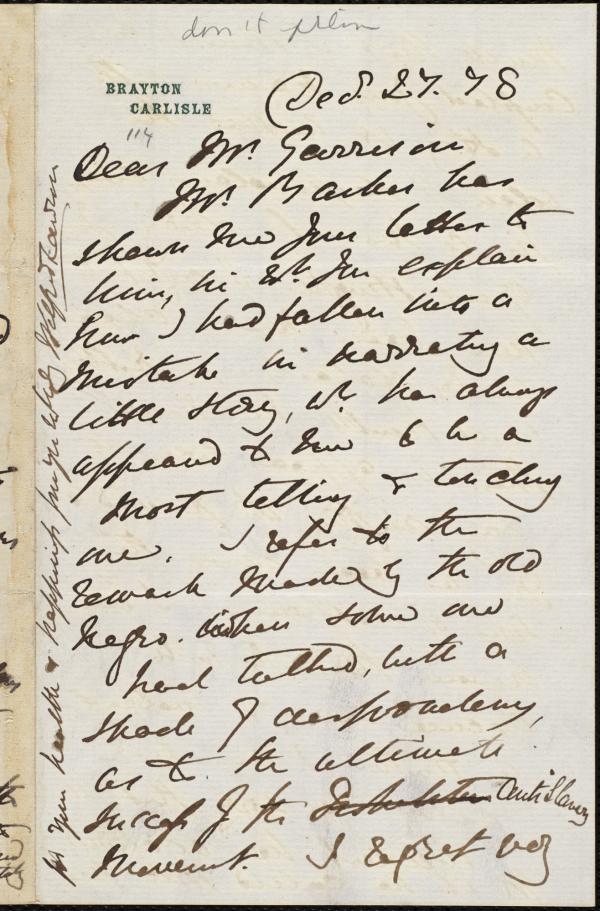 don't print
BRAYTON
CARLISLE
Dec. 27. 78
114
Dear Mr. Garrison
Mr. Barker has
shown me your letter to
him, in wh. you explain
how I had fallen into a
mistake in narrating a
little story, wh. has always
appeared to me to be a
most telling & touching
one. I refer to the
remark made by the old
Negro. when some one
had talked, with a
shade of despondency,
as to the ultimate
success of the Anti Slavery
movement. I regret very
for your health & happiness